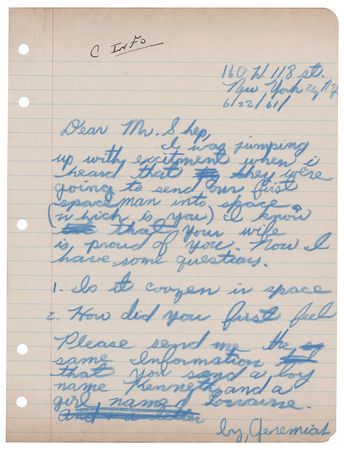 C Info
160 W 118 st.
New York 26, N.Y.
6/22/61
Dear Mr. Shep,
I was jumping
up with excitment when i
heard that they were
going to send our first
space man into space
(which is you) I know
that your wife
is proud of you. Now I
have some questions.
1. Is it cozen in space
2. How did you first feel
Please send me the
same Information
that you send a boy
name Kenneth and a
girl named Lorraine.
And a letter
by, Jeremiah